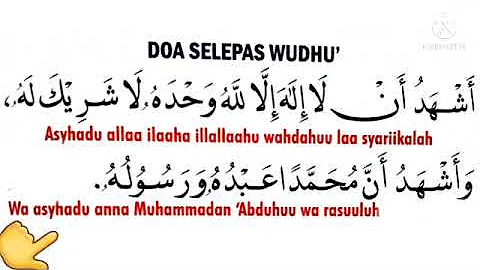 DOA SELEPAS WUDHU'
أَشْهَدُ أَنْ لَا إِلٰهَ إِلَّا اللهُ وَحْدَهُ، لَا شَرِيْكَ لَهُ،
Asyhadu allaa ilaaha illallaahu wahdahuu laa syariikalah
وَأَشْهَدُ أَنَّ مُحَمَّدًا عَبْدُهُ وَرَسُوْلُهُ.
Wa asyhadu anna Muhammadan 'Abduhuu wa rasuuluh